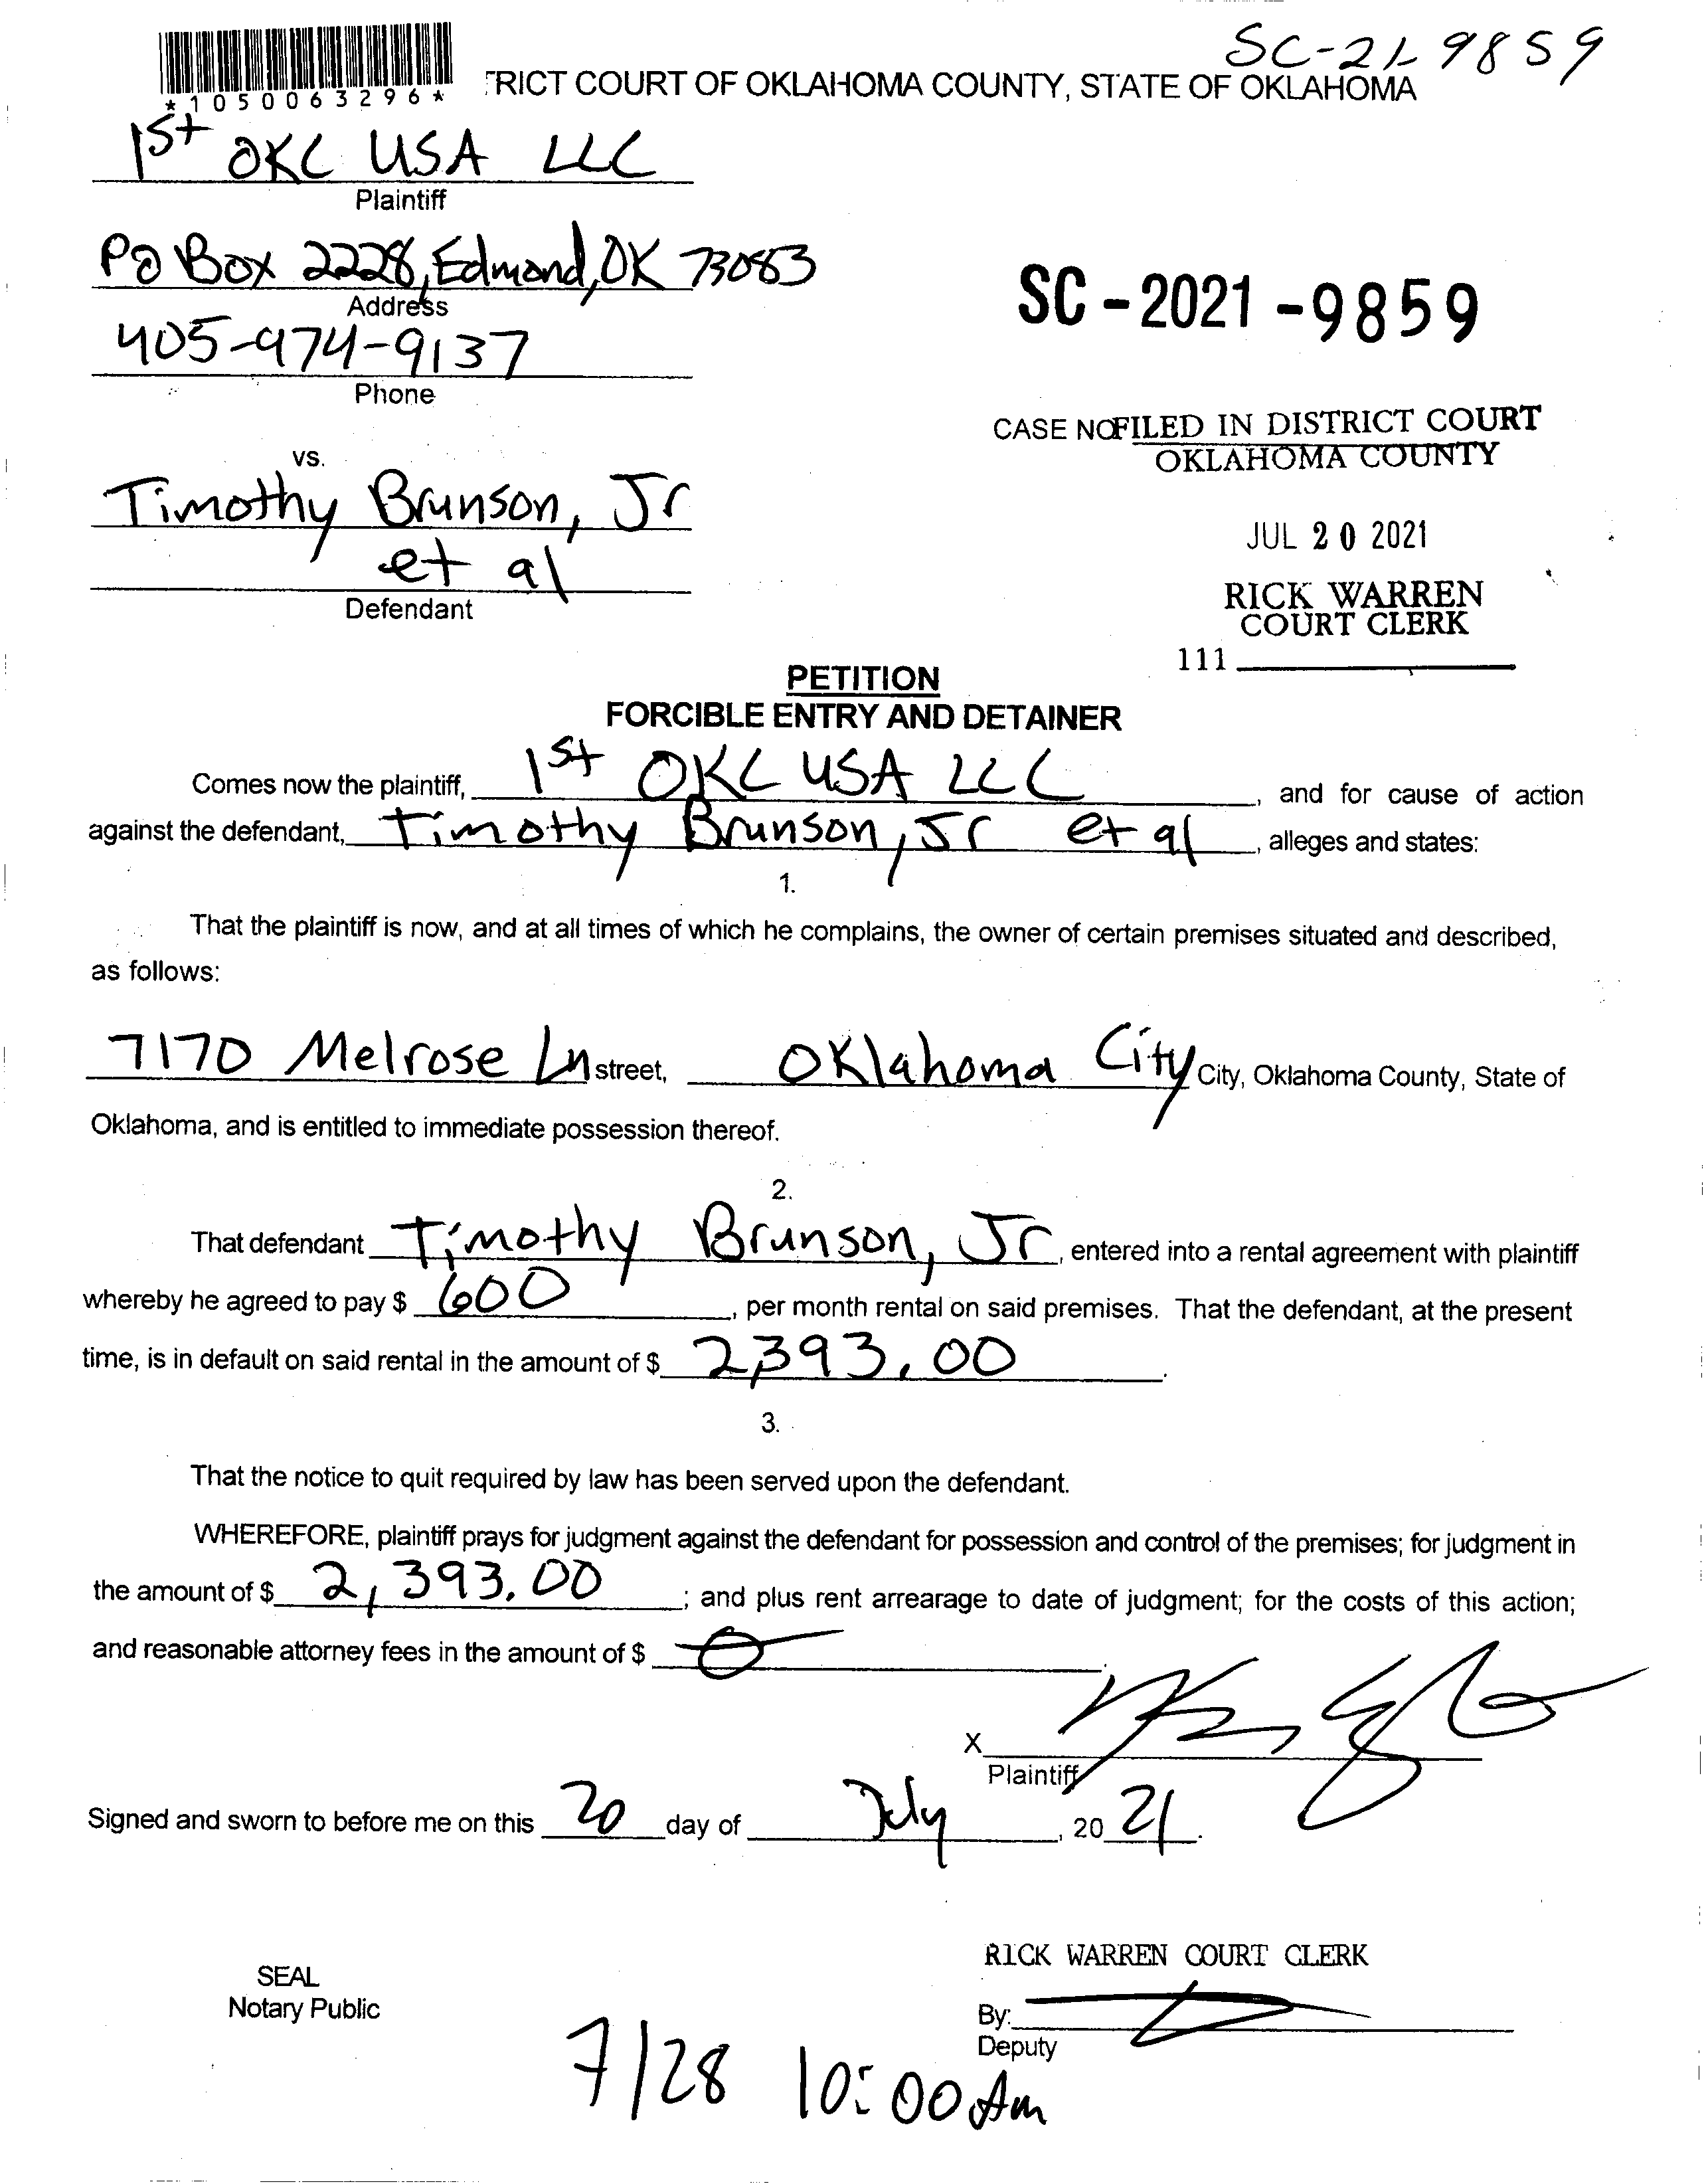 SC-21-9859
*1050063296*
TRICT COURT OF OKLAHOMA COUNTY, STATE OF OKLAHOMA
1st OKC USA LLC
Plaintiff
PO Box 2228, Edmond, OK 73083
Address
SC-2021-9859
405-974-9137
Phone
CASE NO FILED IN DISTRICT COURT
OKLAHOMA COUNTY
vs.
Timothy Brunson, Jr
et al
Defendant
JUL 20 2021
RICK WARREN
COURT CLERK
111
PETITION
FORCIBLE ENTRY AND DETAINER
Comes now the plaintiff, 1st OKC USA LLC, and for cause of action
against the defendant, Timothy Brunson, Jr et al, alleges and states:
1.
That the plaintiff is now, and at all times of which he complains, the owner of certain premises situated and described,
as follows:
7170 Melrose Ln street, Oklahoma City City, Oklahoma County, State of
Oklahoma, and is entitled to immediate possession thereof.
2.
That defendant Timothy Brunson, Jr, entered into a rental agreement with plaintiff
whereby he agreed to pay $ 600, per month rental on said premises. That the defendant, at the present
time, is in default on said rental in the amount of $ 2,393.00.
3.
That the notice to quit required by law has been served upon the defendant.
WHEREFORE, plaintiff prays for judgment against the defendant for possession and control of the premises; for judgment in
the amount of $ 2,393.00; and plus rent arrearage to date of judgment; for the costs of this action;
and reasonable attorney fees in the amount of $ 0.
X
Plaintiff
Signed and sworn to before me on this 20 day of July, 2021.
RICK WARREN COURT CLERK
SEAL
Notary Public
By:
Deputy
7/28 10:00 Am